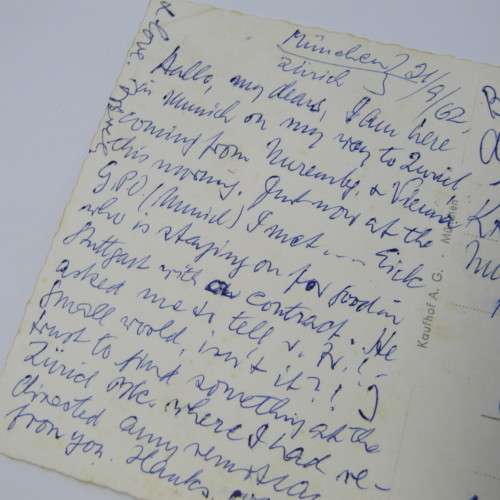 München / 21/9/62.
Zürich
Hallo, my dears, I am here
in Munich on my way to Zurich
coming from Nuremberg & Vienna
this morning. Just now at the
G.P.O (Munich) I met .... Erich
who is staying on for good in
Stuttgart with a contract. He
asked me to tell
small world, isn't it?! I
trust to find something at the
Zürich office where I had re-
directed any
from you. Thanks,
& love
Kaufhof A. G. München